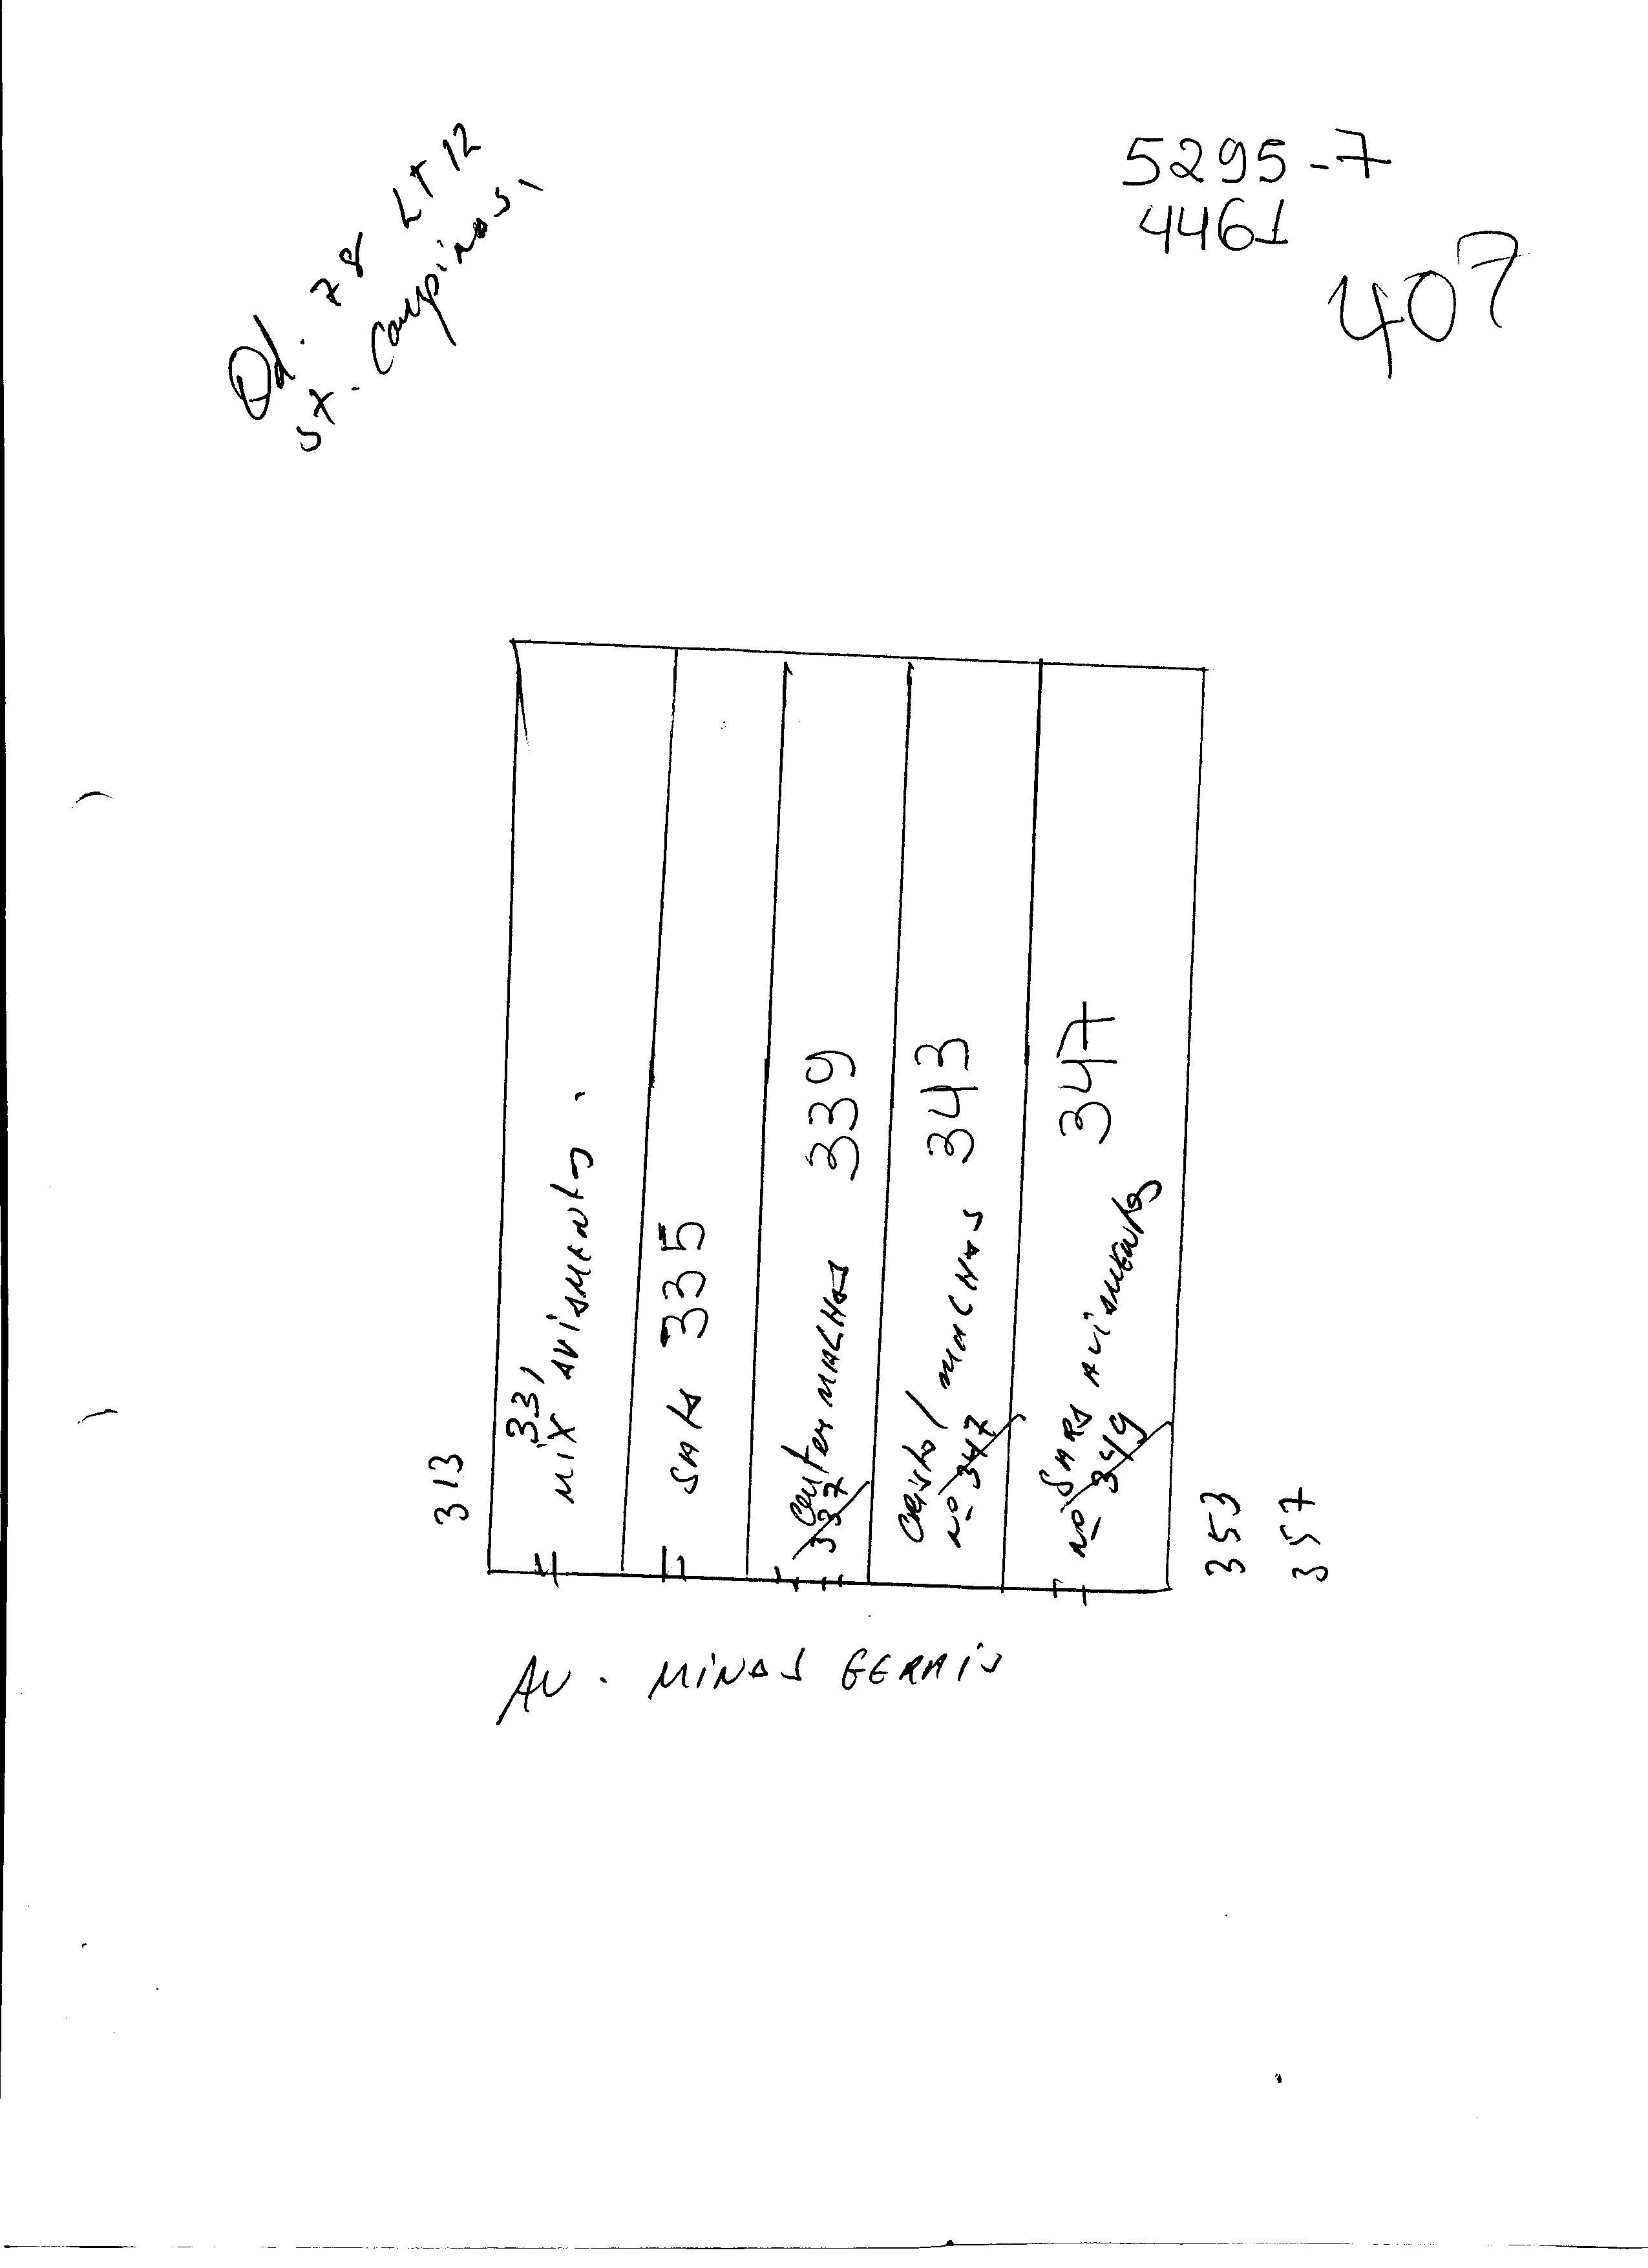 Qd. 78 LT 12
ST. Campinas,
5295-7
4461
407
313
331
MIX AVIAMENTOS.
SALA 335
Center MACHOS 339
337
CRISTO/ MACHOS 343
Nº 347
SARA AVIAMENTOS 347
Nº 349
353
357
AV. MINAS GERAIS